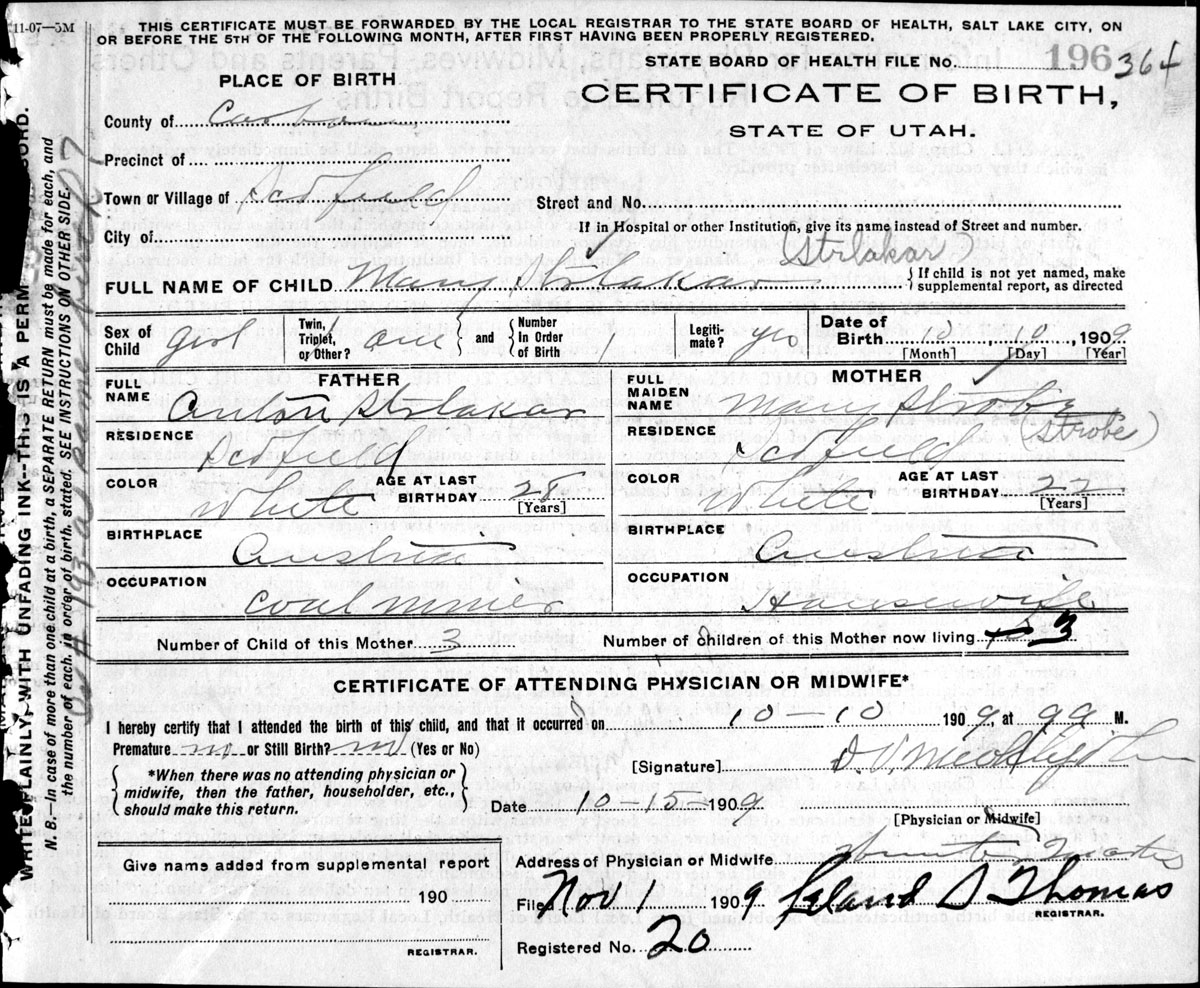 11-07—5M
THIS CERTIFICATE MUST BE FORWARDED BY THE LOCAL REGISTRAR TO THE STATE BOARD OF HEALTH, SALT LAKE CITY, ON
OR BEFORE THE 5TH OF THE FOLLOWING MONTH, AFTER FIRST HAVING BEEN PROPERLY REGISTERED.
STATE BOARD OF HEALTH FILE No. 196 364
PLACE OF BIRTH
CERTIFICATE OF BIRTH,
STATE OF UTAH.
County of Carbon
Precinct of
Town or Village of Scofield
Street and No.
If in Hospital or other Institution, give its name instead of Street and number.
City of
Strlakar
FULL NAME OF CHILD Mary Strlakar
If child is not yet named, make
supplemental report, as directed
Sex of Child girl
Twin, Triplet, or Other? one and Number In Order of Birth 1
Legitimate? yes
Date of Birth 10, 10 1909
[Month] [Day] [Year]
FATHER
MOTHER
FULL NAME Anton Strlakar
FULL MAIDEN NAME Mary Strobe
(Strobe)
RESIDENCE Scofield
RESIDENCE Scofield
COLOR White AGE AT LAST BIRTHDAY 28 [Years]
COLOR White AGE AT LAST BIRTHDAY 22 [Years]
BIRTHPLACE Austria
BIRTHPLACE Austria
OCCUPATION Coal miner
OCCUPATION Housewife
Number of Child of this Mother 3
Number of children of this Mother now living 3
CERTIFICATE OF ATTENDING PHYSICIAN OR MIDWIFE*
I hereby certify that I attended the birth of this child, and that it occurred on 10-10 1909, at 9 a M.
Premature no or Still Birth? no (Yes or No)
[Signature]
*When there was no attending physician or
midwife, then the father, householder, etc.,
should make this return.
Date 10-12-1909
[Physician or Midwife]
Give name added from supplemental report
190
REGISTRAR.
Address of Physician or Midwife Winter Quarters
Filed Nov 1 1909 Leland S Thomas
REGISTRAR.
Registered No. 20
WRITE PLAINLY, WITH UNFADING INK--THIS IS A PERM ORD.
N. B.—In case of more than one child at a birth, a SEPARATE RETURN must be made for each, and
the number of each, in order of birth, stated. SEE INSTRUCTIONS ON OTHER SIDE.